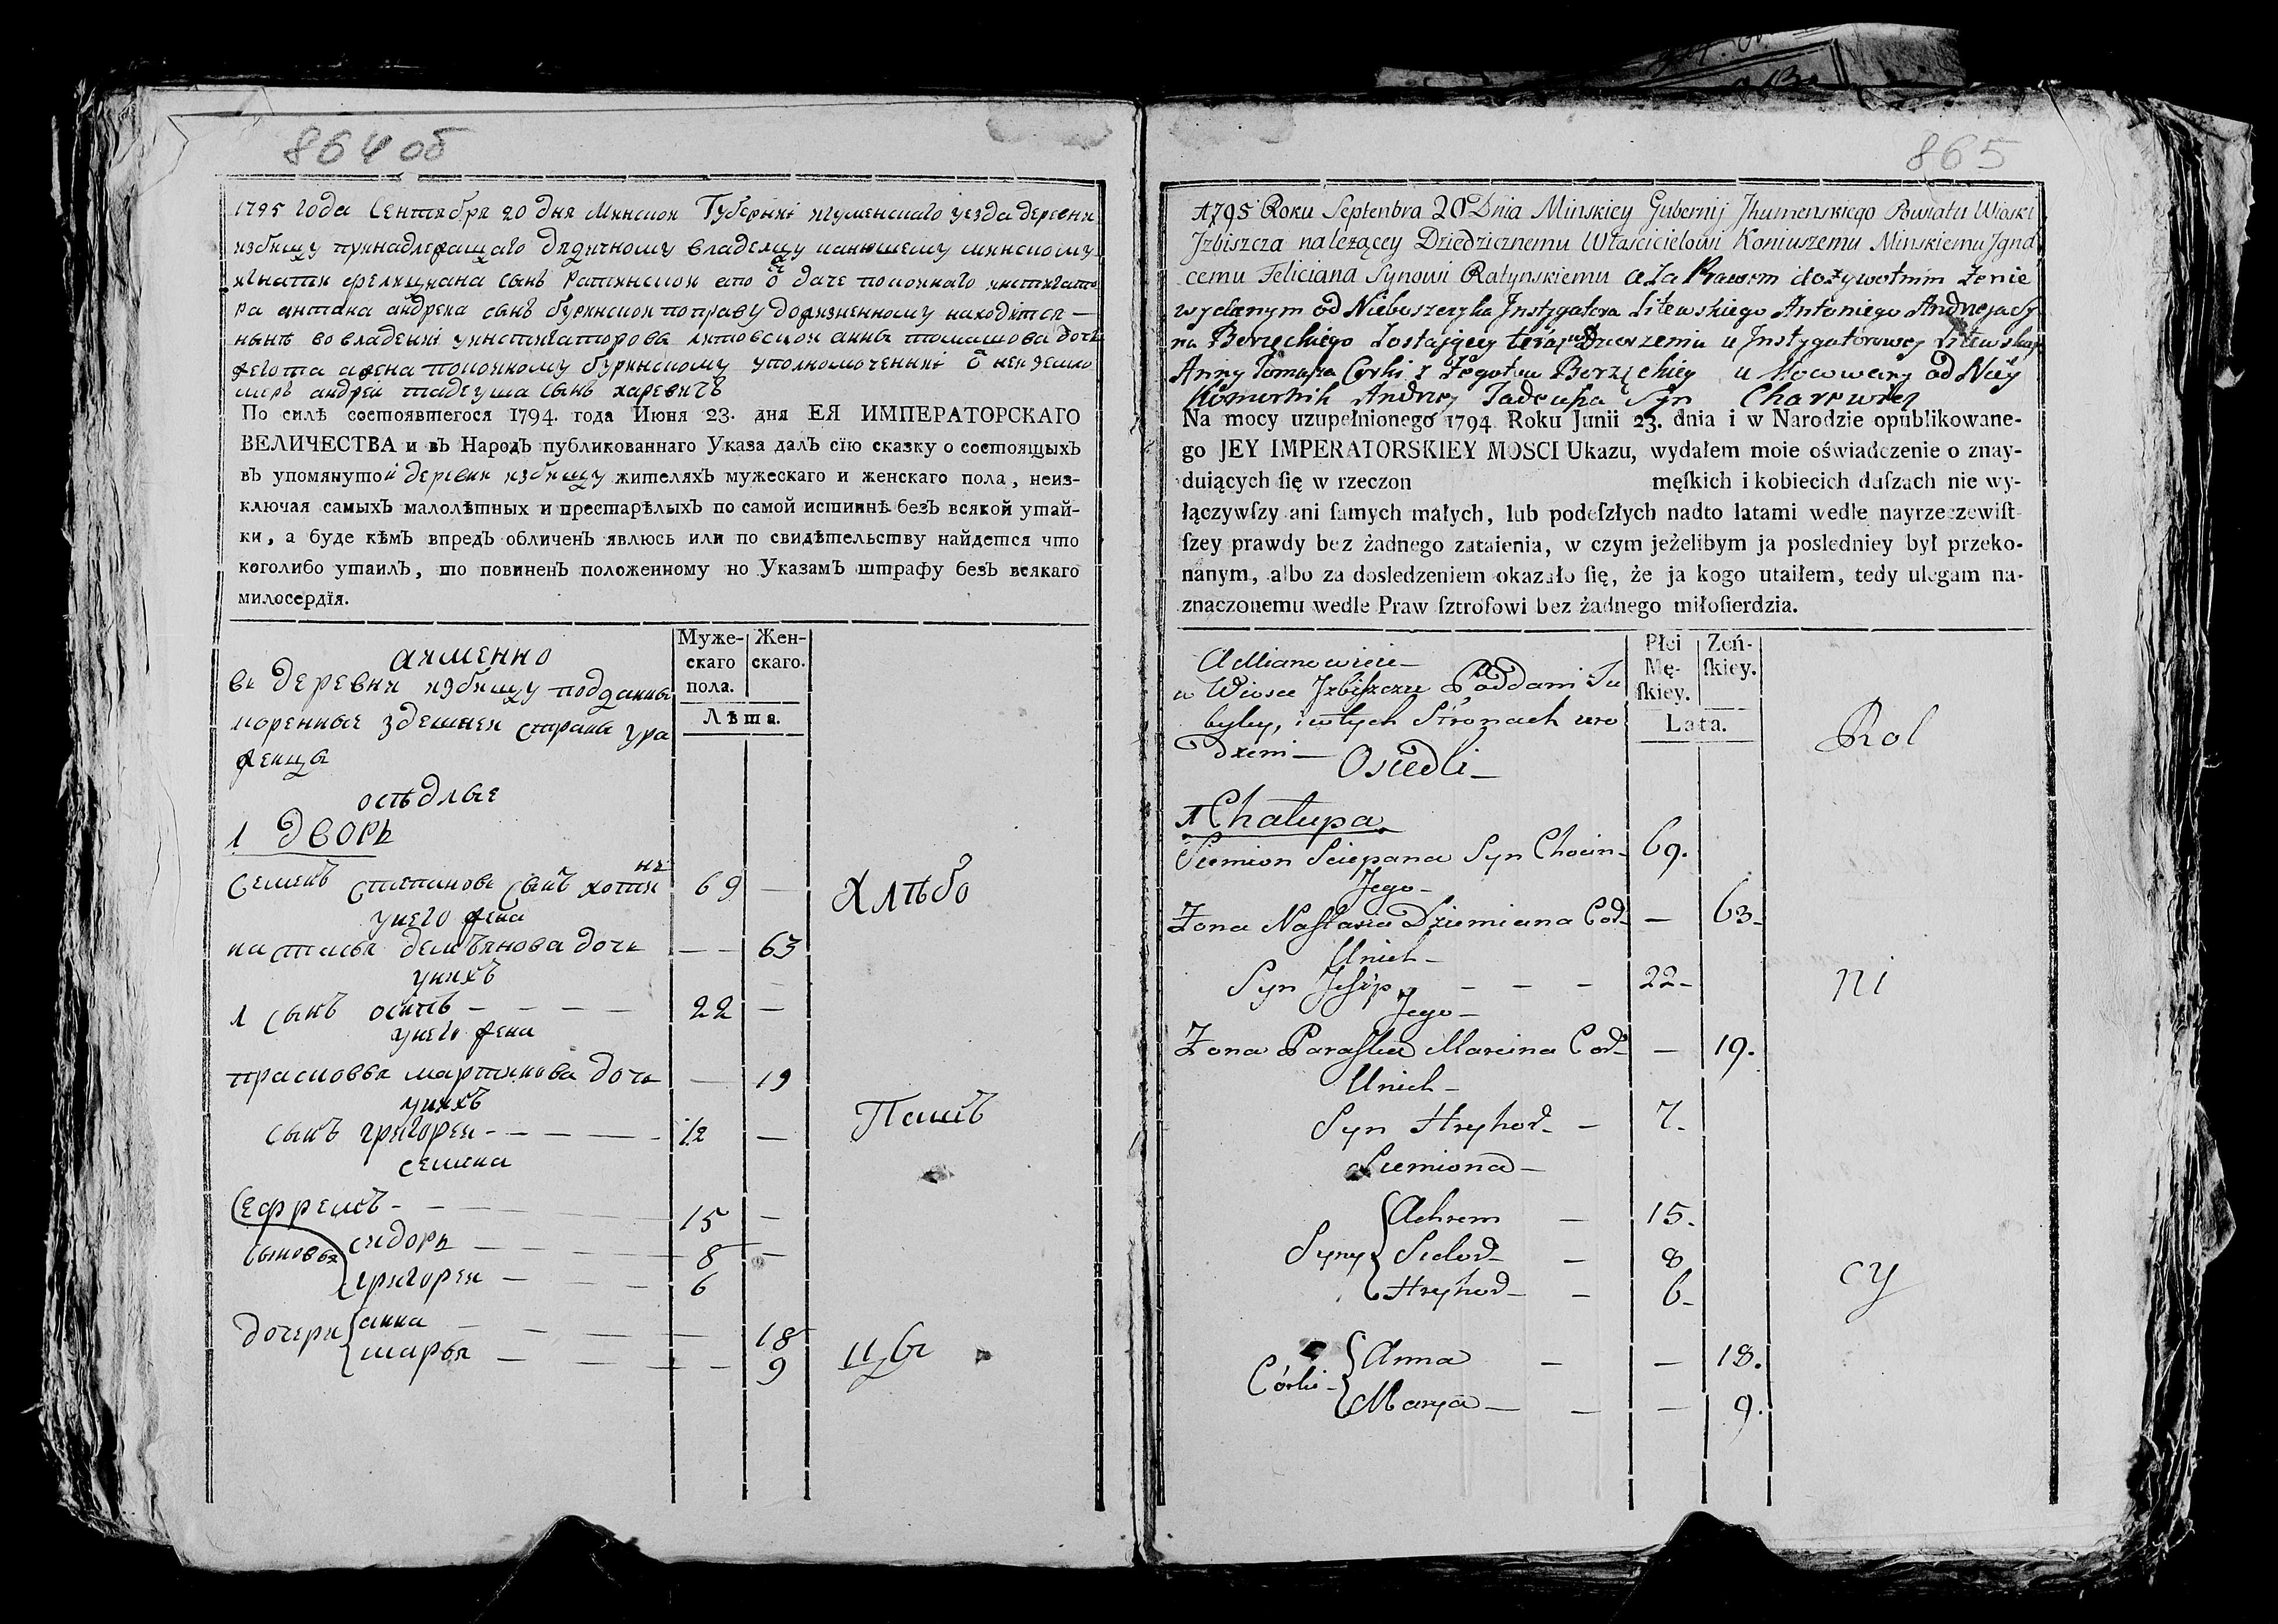 864 об
1795 года Сентября 20 дня Минской Губернии игуменскаго уезда деревни
избищу принадлежащаго дядичному владелцу конюшему минскому
игнатия фелициана сынъ ратинской
антона андрея сынъ по праву дожизненному находится —
нынѣ во владении литовской анны томашова дочь
андрей тадеуша сынъ харевичъ
По силѣ состоявшегося 1794. года Июня 23. дня ЕЯ ИМПЕРАТОРСКАГО
ВЕЛИЧЕСТВА и въ Народъ публикованнаго Указа далъ сїю сказку о состоящыхъ
въ упомянутой деревни избищу жителяхъ мужескаго и женскаго пола, неиз-
ключая самыхъ малолѣтныхъ и престарѣлыхъ по самой истиннѣ безъ всякой утай-
ки, а буде кѣмъ впредъ обличенъ явлюсь или по свидѣтельству найдется что
коголибо утаилъ, то повиненъ положенному по Указамъ штрафу безъ всякаго
милосердїя.
Муже-
скаго
пола.
Жен-
скаго.
Лѣта.
аименно
въ деревни избищу подданные
коренные здешней стараны ура
женцы
осѣдлые
1 дворъ
Семенъ степановъ сынъ хотинъ 69 —
у него жена
настасья демъянова дочь — — 63
у нихъ
1 сынъ осипъ — — — — 22 —
у него жена
прасковья мартинова дочь — 19
у нихъ
сынъ григорей - — — — - 12 —
семена
сыновья
ефремъ - - — — — 15 —
сидоръ — — — — 8 —
григорей — — — — 6
дочери
анна — — — — 18
марья — — — — — 9
Хлѣбо
Паш
цы
865
1795 Roku Septenbra 20 Dnia Minskiey Gubernij Jhumenskiego Powiatu Wioski
Jzbiszcza nalezącey Dziedzicznemu Włascicielowi Koniuszemu Minskiemu Jgna
cemu Feliciana Synowi Ratynskiemu a za Prawem dożywotnim Żenie
wydanym od Nieboszczyka Jnstygatora Litewskiego Antoniego Andrzeja Sy
na Burzęckiego Zostającey teraz w Dzierzeniu u Jnstygatorowey Litewskiey
Anny Tomasza Corki z Żegotow Burzęckiey umocowany od Niey
Komornik Andrzey Tadeusza Syn Charewicz
Na mocy uzupełnionego 1794 Roku Junii 23. dnia i w Narodzie opublikowane-
go JEY IMPERATORSKIEY MOSCI Ukazu, wydałem moie oświadczenie o znay-
duiących ſię w rzeczon męſkich i kobiecich duſzach nie wy-
łączywſzy ani ſamych małych, lub podeſzłych nadto latami wedle nayrzeczewiſt
ſzey prawdy bez żadnego zataienia, w czym jeżelibym ja posledniey był przeko-
nanym, albo za dosledzeniem okazało ſię, że ja kogo utaiłem, tedy ulegam na-
znaczonemu wedle Praw ſztrofowi bez żadnego miłoſierdzia.
Płci
Mę-
ſkiey.
Żeń-
ſkiey.
Lata.
A Mianowicie —
w Wiosce Jzbiszczu Poddani Tu
bylcy, i w tych Stronach uro
dzeni — Osiedli —
1 Chałupa
Siemion Sciepana Syn Chocin - 69.
Jego —
Żona Nastazia Dziemiana Cor - — 63 -
U nich —
Syn Jesip — — — 22 -
Jego —
Żona Paraska Marcina Cor - — 19.
U nich —
Syn Hryhor - — 7 -
Siemiona —
Syny
Achrem — 15.
Sidor - — 8
Hryhor - — 6 -
Córki -
Anna — — 18.
Marya — — — 9.
Rol
ni
cy